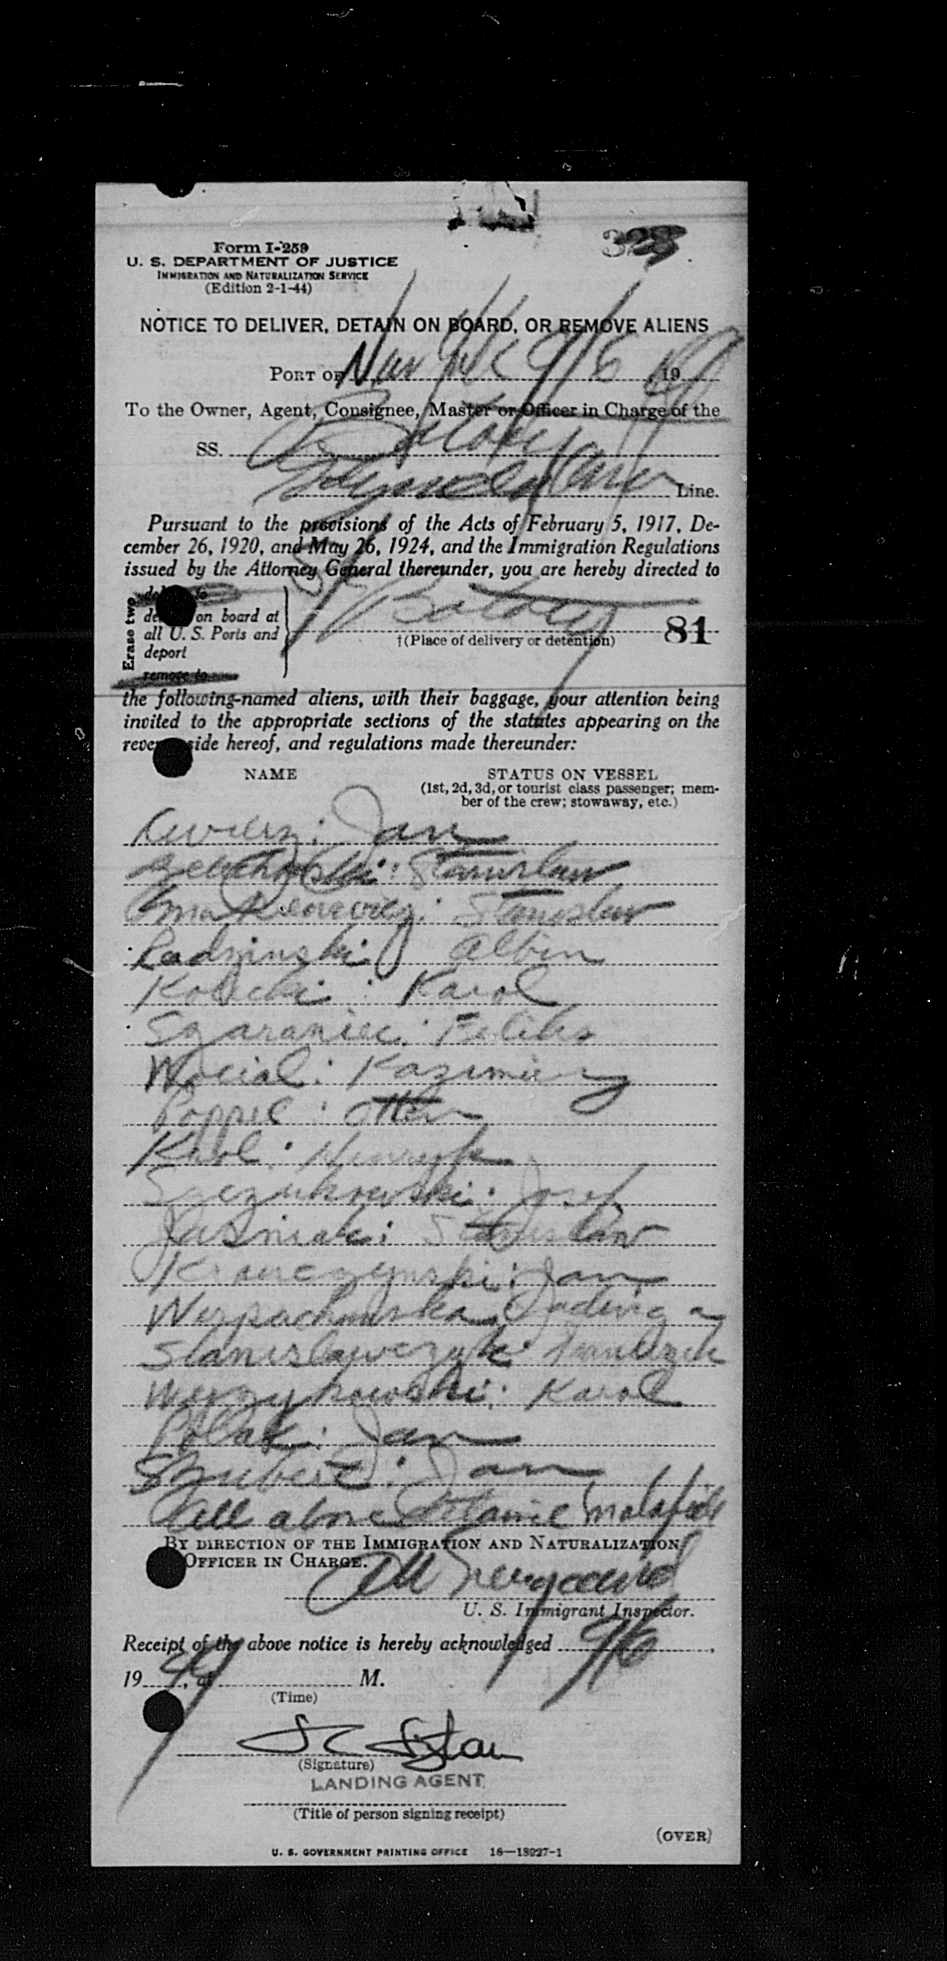 328
Form I-259
U. S. DEPARTMENT OF JUSTICE
IMMIGRATION AND NATURALIZATION SERVICE
(Edition 2-1-44)
NOTICE TO DELIVER, DETAIN ON BOARD, OR REMOVE ALIENS
PORT OF New York 9/6, 1949
To the Owner, Agent, Consignee, Master or Officer in Charge of the
SS. Batory
Gdynia Line.
Pursuant to the provisions of the Acts of February 5, 1917, De-
cember 26, 1920, and May 26, 1924, and the Immigration Regulations
issued by the Attorney General thereunder, you are hereby directed to
Erase two
deliver to
detain on board at
all U. S. Ports and
deport
remove to
SS Batory 81
†(Place of delivery or detention)
the following-named aliens, with their baggage, your attention being
invited to the appropriate sections of the statutes appearing on the
reverse side hereof, and regulations made thereunder:
NAME STATUS ON VESSEL
(1st, 2d, 3d, or tourist class passenger; mem-
ber of the crew; stowaway, etc.)
Jan
Stanislaw
Stanislaw
Radzinski: Albin
Kobicki: Karol
Szaraniec: Feliks
Wocial: Kazimierz
Poppel: Otton
Krol: Henryk
Szczukowski: Josef
Jasniak: Stanislaw
Krawczynski: Jan
Werpachowska: Jadwiga
Stanislawczyk: Franciszek
Wyrzykowski: Karol
Polak: Jan
Szubert: Jan
All above detained malafide
BY DIRECTION OF THE IMMIGRATION AND NATURALIZATION
OFFICER IN CHARGE.
U. S. Immigrant Inspector.
Receipt of the above notice is hereby acknowledged 9/6,
1949, at M.
(Time)
(Signature)
LANDING AGENT
(Title of person signing receipt)
(OVER)
U. S. GOVERNMENT PRINTING OFFICE 16—18927-1